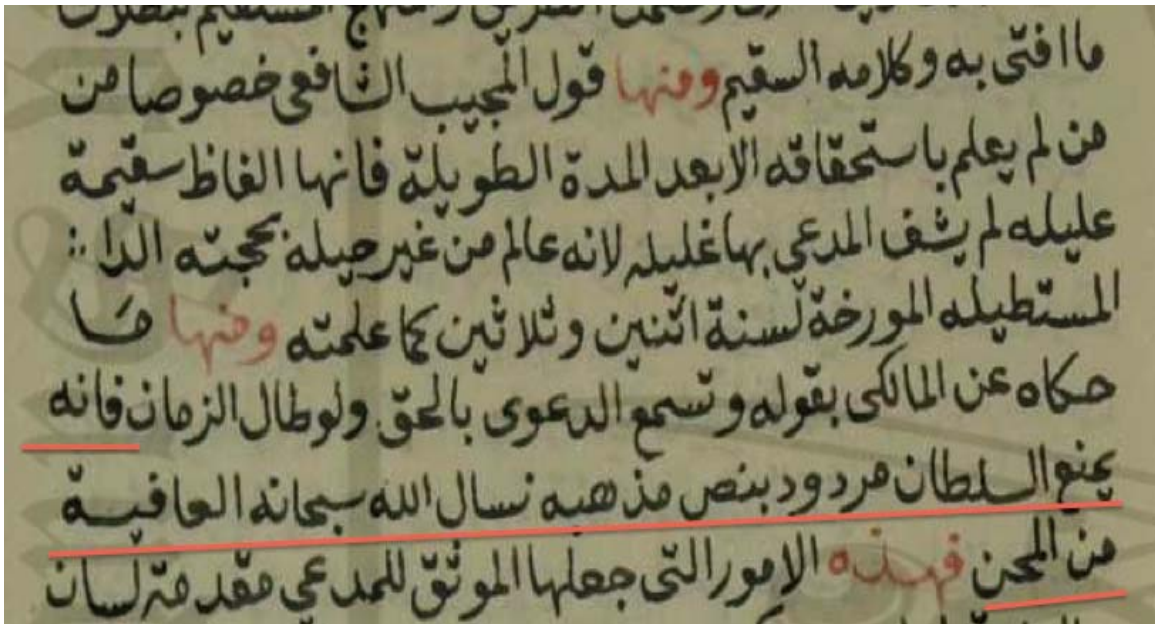 ما افتى به وكلامه السقيم ومنها قول المجيب الشافعى خصوصا من
من لم يعلم باستحقاقه الا بعد المدة الطويلة فانها الفاظ سقيمة
عليله لم يشف المدعي بها غليله لانه عالم من غير حيلة بحجته
المستطيله المورخة لسنة اثنين وثلاثين كما علمته ومنها ما
حكاه عن المالكى بقوله وتسمع الدعوى بالحق ولو طال الزمان فانه
بمنع السلطان مردود بنص مذهبه نسال الله سبحانه العافية
من المحن فهذه الامور التى جعلها الموثق للمدعي مقدمة لسان